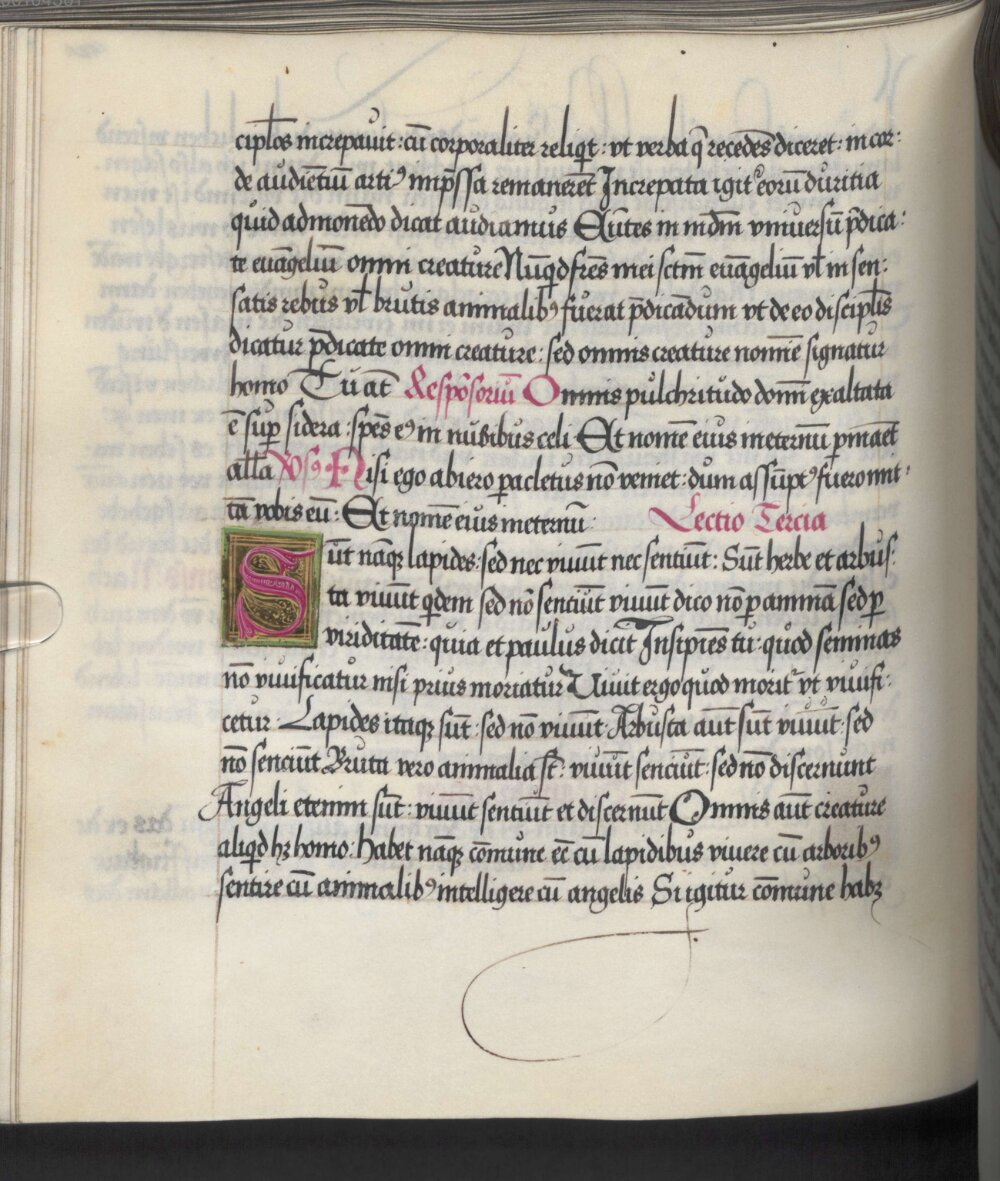 ciplos increpavit : cū corporaliter reliqͥt : vt verba q̄ recedēs diceret : in cor:
de audiētiū artiꝰ imp̄ssa remanerēt Increpata igitᷣ eorū duritia
quid admonēdo dicat audiamus Eūtes in mdm̄ vniuersū p̄dica:
te euāgeliū omni creature Nūqͥd frēs mei sctm̄ euāgeliū vl̄ in sen:
satis rebus vl̄ brutis animalibꝰ fuerat p̄dicādum vt de eo discipl̄is
dicatur p̄dicate omni creature : sed omnis creature nomīe signatur
homo Tu aūt Respōsoriū Omnis pulchritudo domī exaltata
ē suꝑ sidera : spēs eꝰ in nubibus celi Et nomē eius ineternū ꝑmaēt
all̄a Vsꝰ Nisi ego abiero paracletus nō veniet : dum assūptꝰ fuero mit:
tā vobis eū : Et nomē eius ineternū Lectio Tercia
Sūt nāqꝫ lapides : sed nec viuūt nec sentiūt : Sūt herbe et arbus:
ta viuūt qͥdem sed nō sentiūt viuūt dico nō ꝑ animā sed ꝑ
viriditatē : quia et paulus dicit Insipiēs tu : quod seminas
nō viuificatur nisi prius moriatur Viuit ergo quod moritᷣ vt viuifi:
cetur Lapides itaqꝫ sūt : sed nō viuūt Arbusta aūt sūt viuūt : sed
nō senciūt Bruta vero animalia st̄ : viuūt senciūt : sed nō discernunt
Angeli etenim sūt : viuūt sentiūt et discernūt Omnis aūt creature
aliqͥd hꝫ homo : habet nāqꝫ cōmune eē cū lapidibus viuere cū arboribꝰ
sentire cū animalibꝰ intelligere cū angelis Si igitur cōmune habꝫ